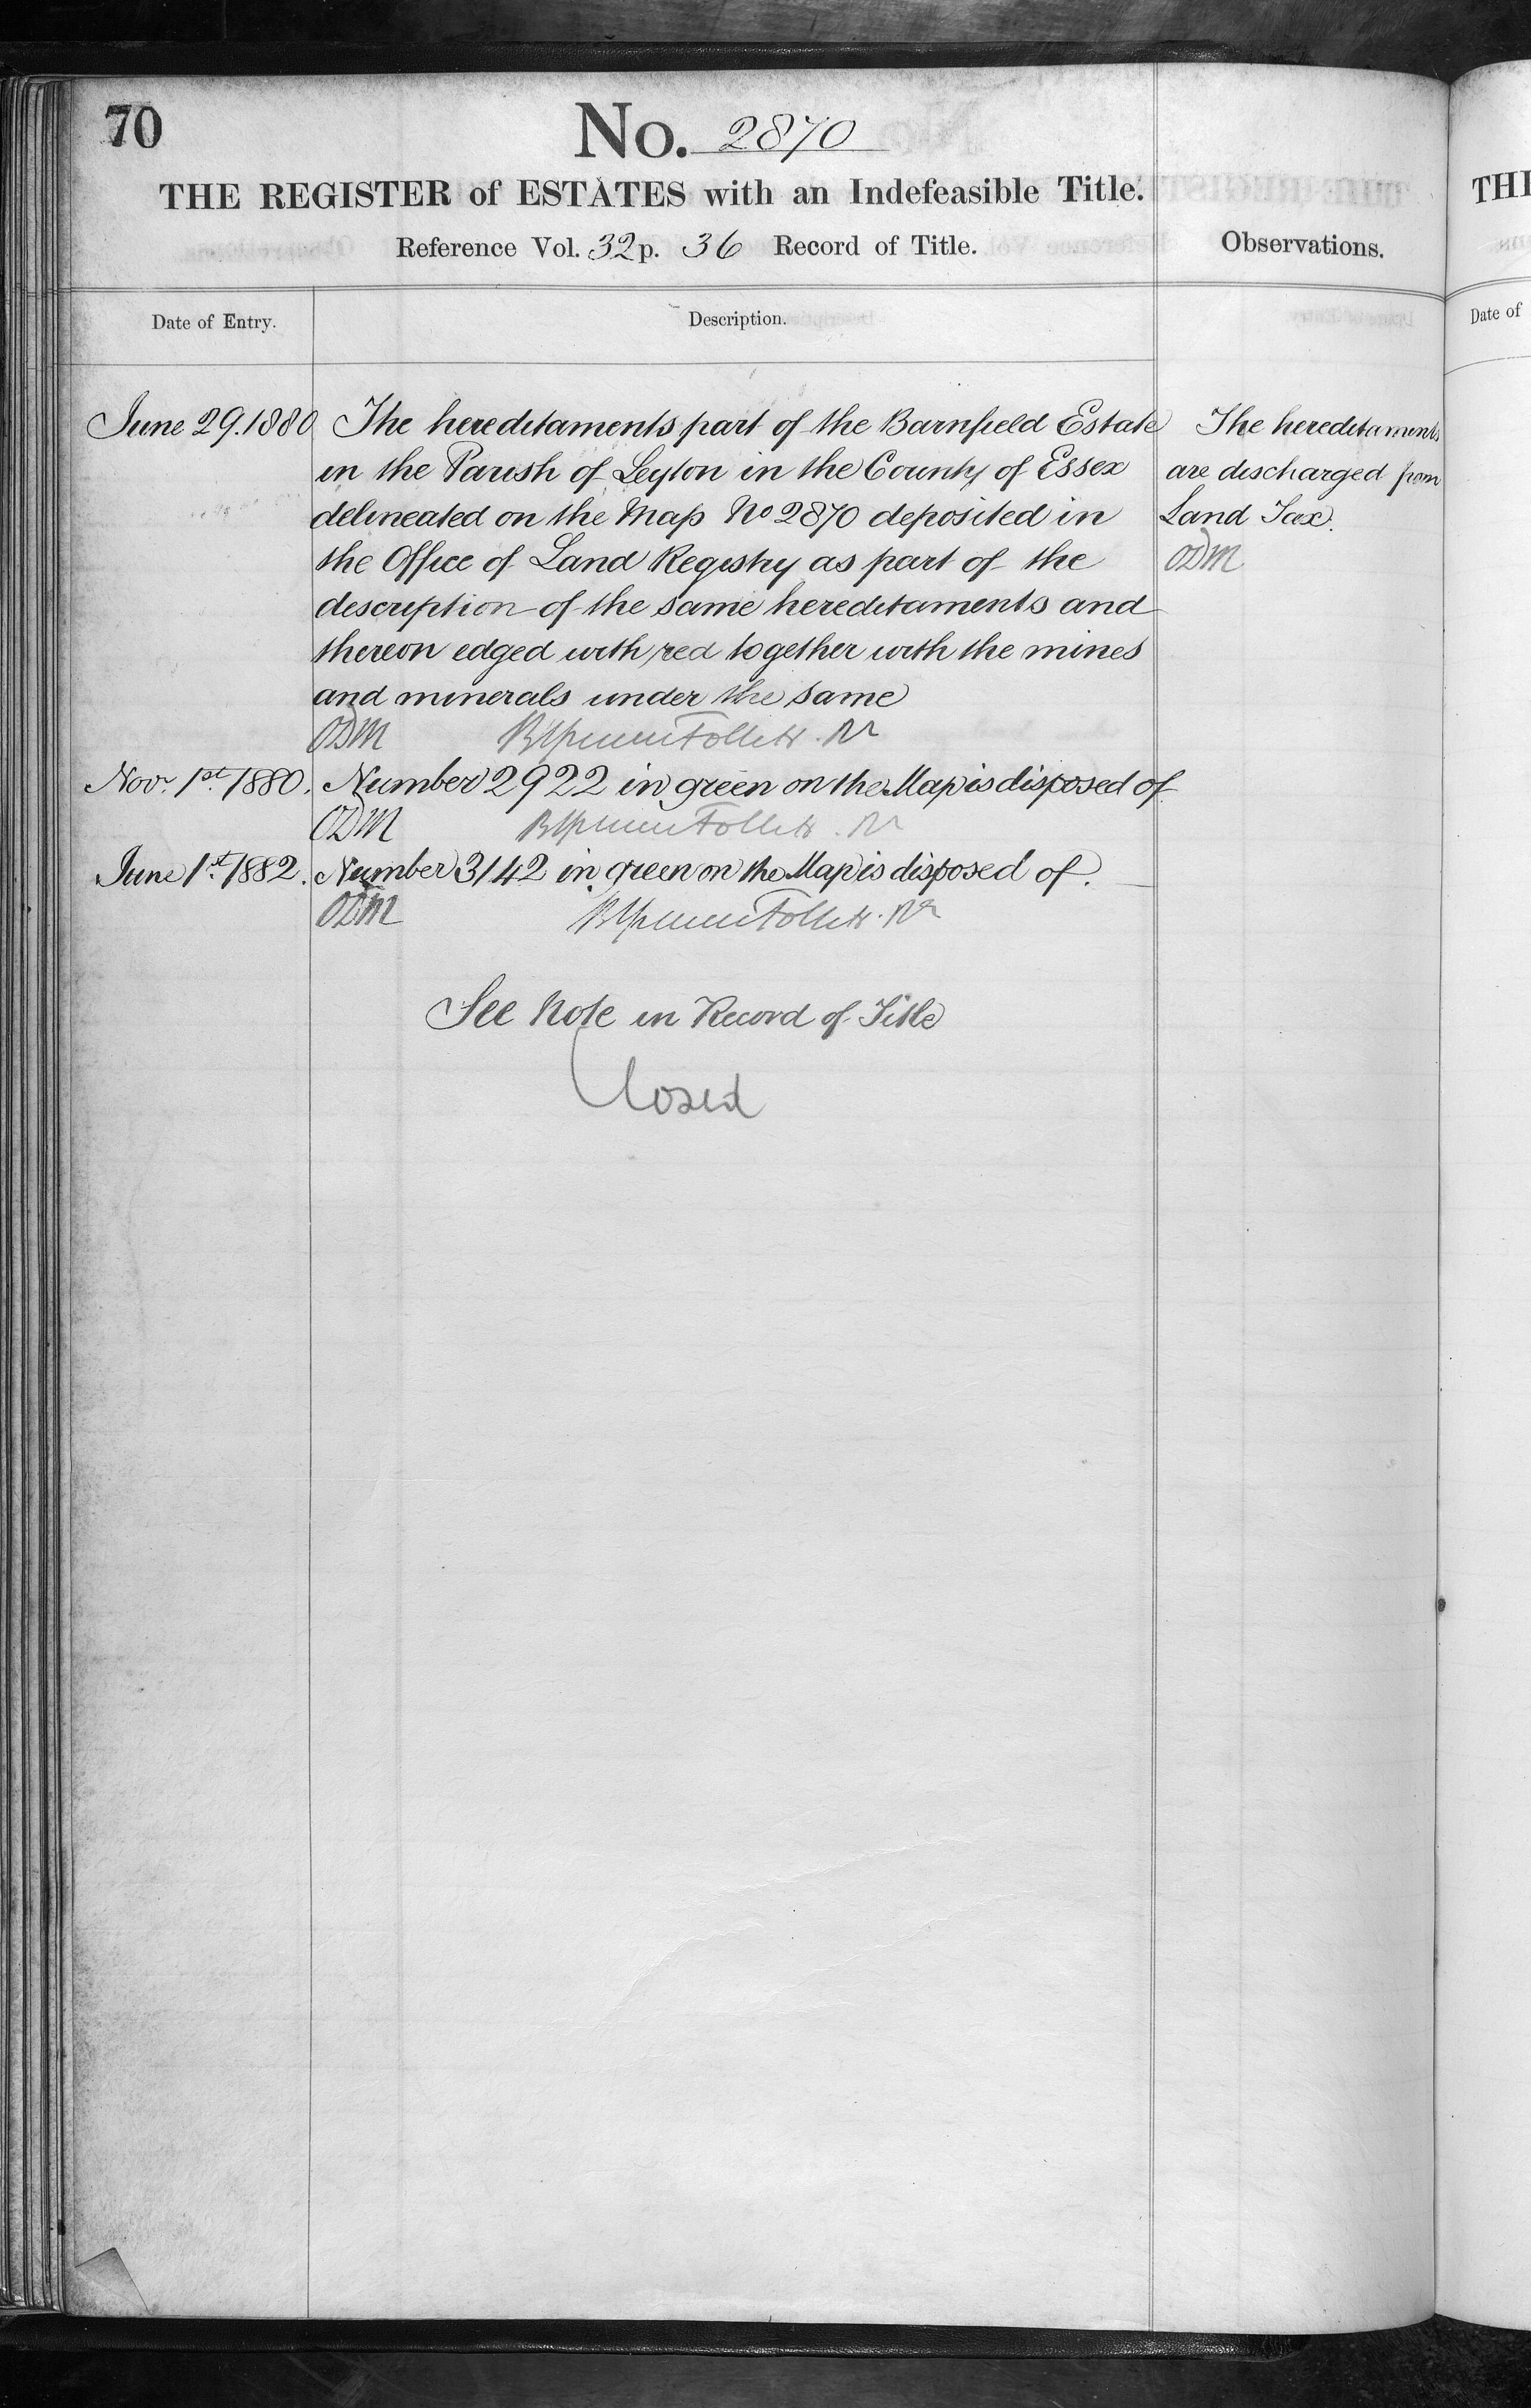 70
No. 2870
THE REGISTER of ESTATES with an Indefeasible Title.
Reference Vol. 32 p. 36 Record of Title.
Observations.
Date of Entry.
Description.
June 29. 1880
The hereditaments part of the Barnfield Estate
in the Parish of Leyton in the County of Essex
delineated on the Map No 2870 deposited in
the Office of Land Registry as part of the
description of the same hereditaments and
thereon edged with red together with the mines
and minerals under the same
ODM Follett. Rr
The hereditaments
are discharged from
Land Tax.
ODM
Novr. 1st. 1880. Number 2922 in green on the Map is disposed of
ODM Follett. Rr
June 1st. 1882. Number 3142 in green on the Map is disposed of.
ODM Follett. Rr
See Note in Record of Title
Closed
THE
Date of